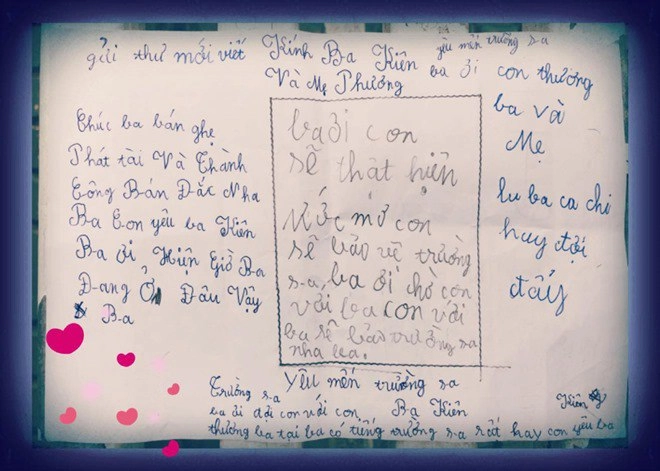 gửi thư mới viết Kính Ba Kiên yêu mến trường sa
Và Mẹ Phương ba ơi con thương
ba và
Mẹ
Chúc ba bán ghẹ
Phát tài Và Thành
Công Bán Đắc Nha
Ba Con yêu ba Kiên
Ba ơi Hiện Giờ Ba
Đang Ở Đâu Vậy
Ba
ba ơi con
sẽ thật hiện
ước mơ con
sẽ bảo vệ trường
sa, ba ơi chờ con
với ba con với
ba sẽ bảo trường sa
nha ba.
lu ba ca chi
huy đợi
đấy
Yêu mến trường sa
Trường sa
ba ơi đợi con với con Ba Kiên
Kiên
thương ba tại ba có tiếng trường sa rất hay con yêu ba